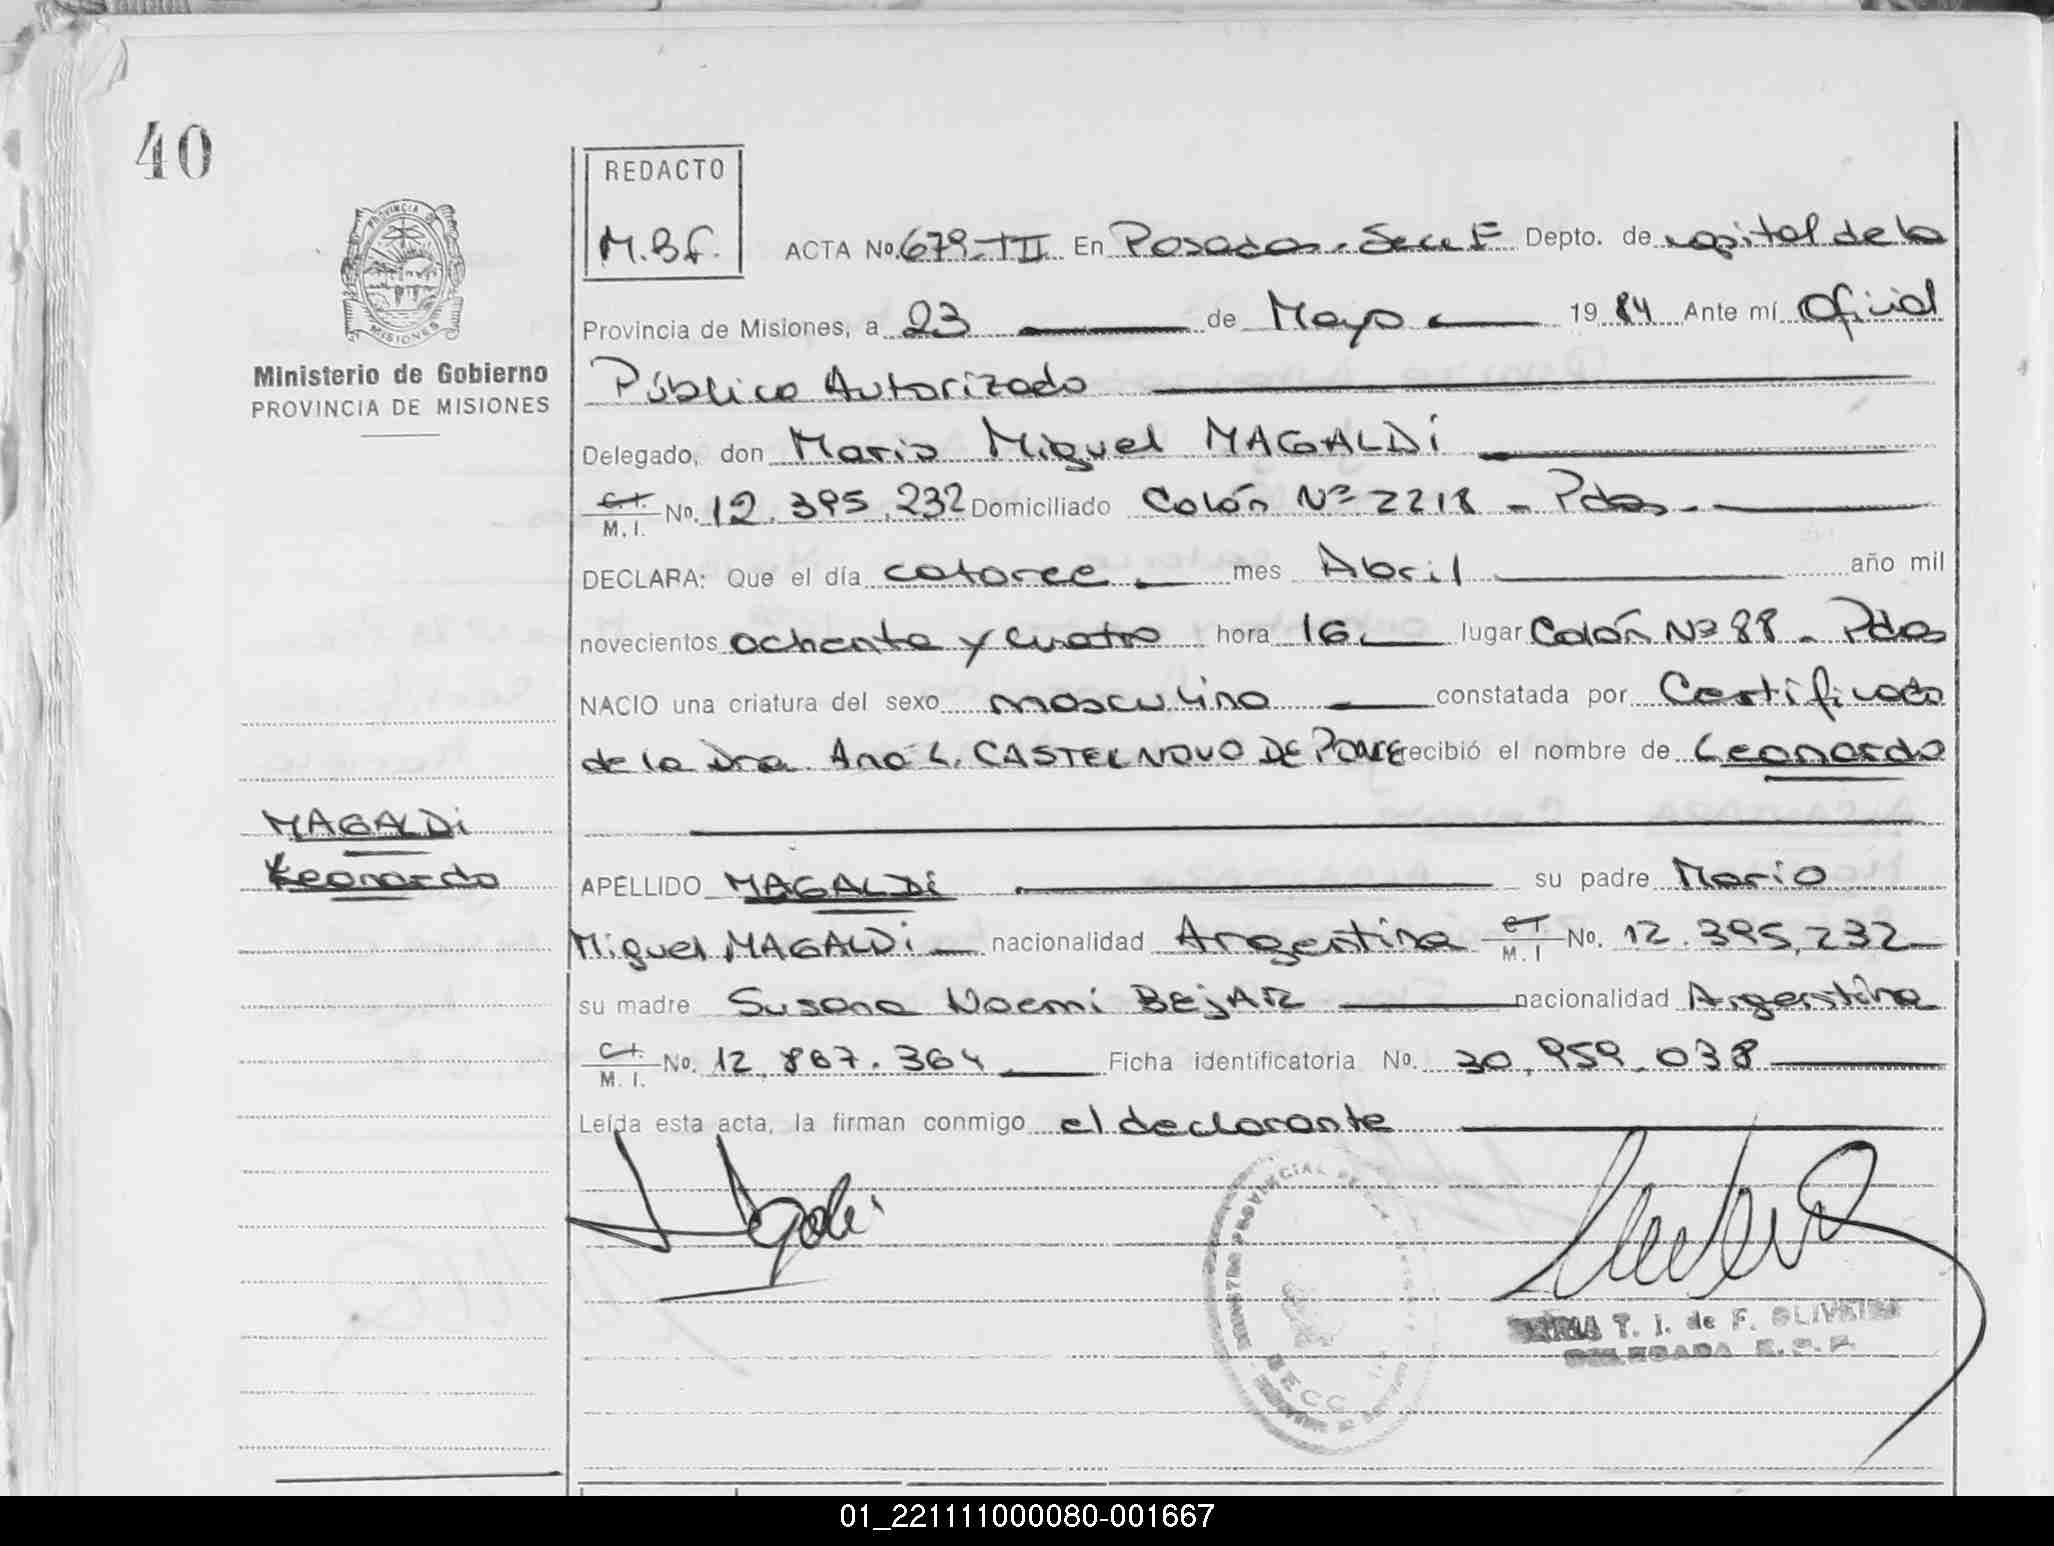 40
PROVINCIA DE
MISIONES
Ministerio de Gobierno
PROVINCIA DE MISIONES
MAGALDi
Leonardo
REDACTO
M.B.F.
ACTA No. 679-III En Posadas - Secc F Depto. de capital de la
Provincia de Misiones, a 23 de Mayo 19 84 Ante mí Oficial
Público Autorizado
Delegado, don Mario Miguel MAGALDi
C.I. M. I. No. 12.395.232 Domiciliado Colón Nº 2218 - Pdas.
DECLARA: Que el día catorce mes Abril año mil
novecientos ochenta y cuatro hora 16 lugar Colón Nº 88 - Pdas
NACIO una criatura del sexo masculino constatada por Certificado
de la Dra. Ana L. CASTELNOVO DE PONCE recibió el nombre de Leonardo
APELLIDO MAGALDi su padre Mario
Miguel MAGALDi nacionalidad Argentina C.I. M. I No. 12.395.232
su madre Susana Noemí BEjAR nacionalidad Argentina
C.I. M. I. No. 12.867.364 Ficha identificatoria No. 30.959.038
Leída esta acta, la firman conmigo el declarante
REGISTRO PROVINCIAL DE LAS
SECC.
MARIA T. I. de F. OLIVEIRA
DELEGADA
01_221111000080-001667